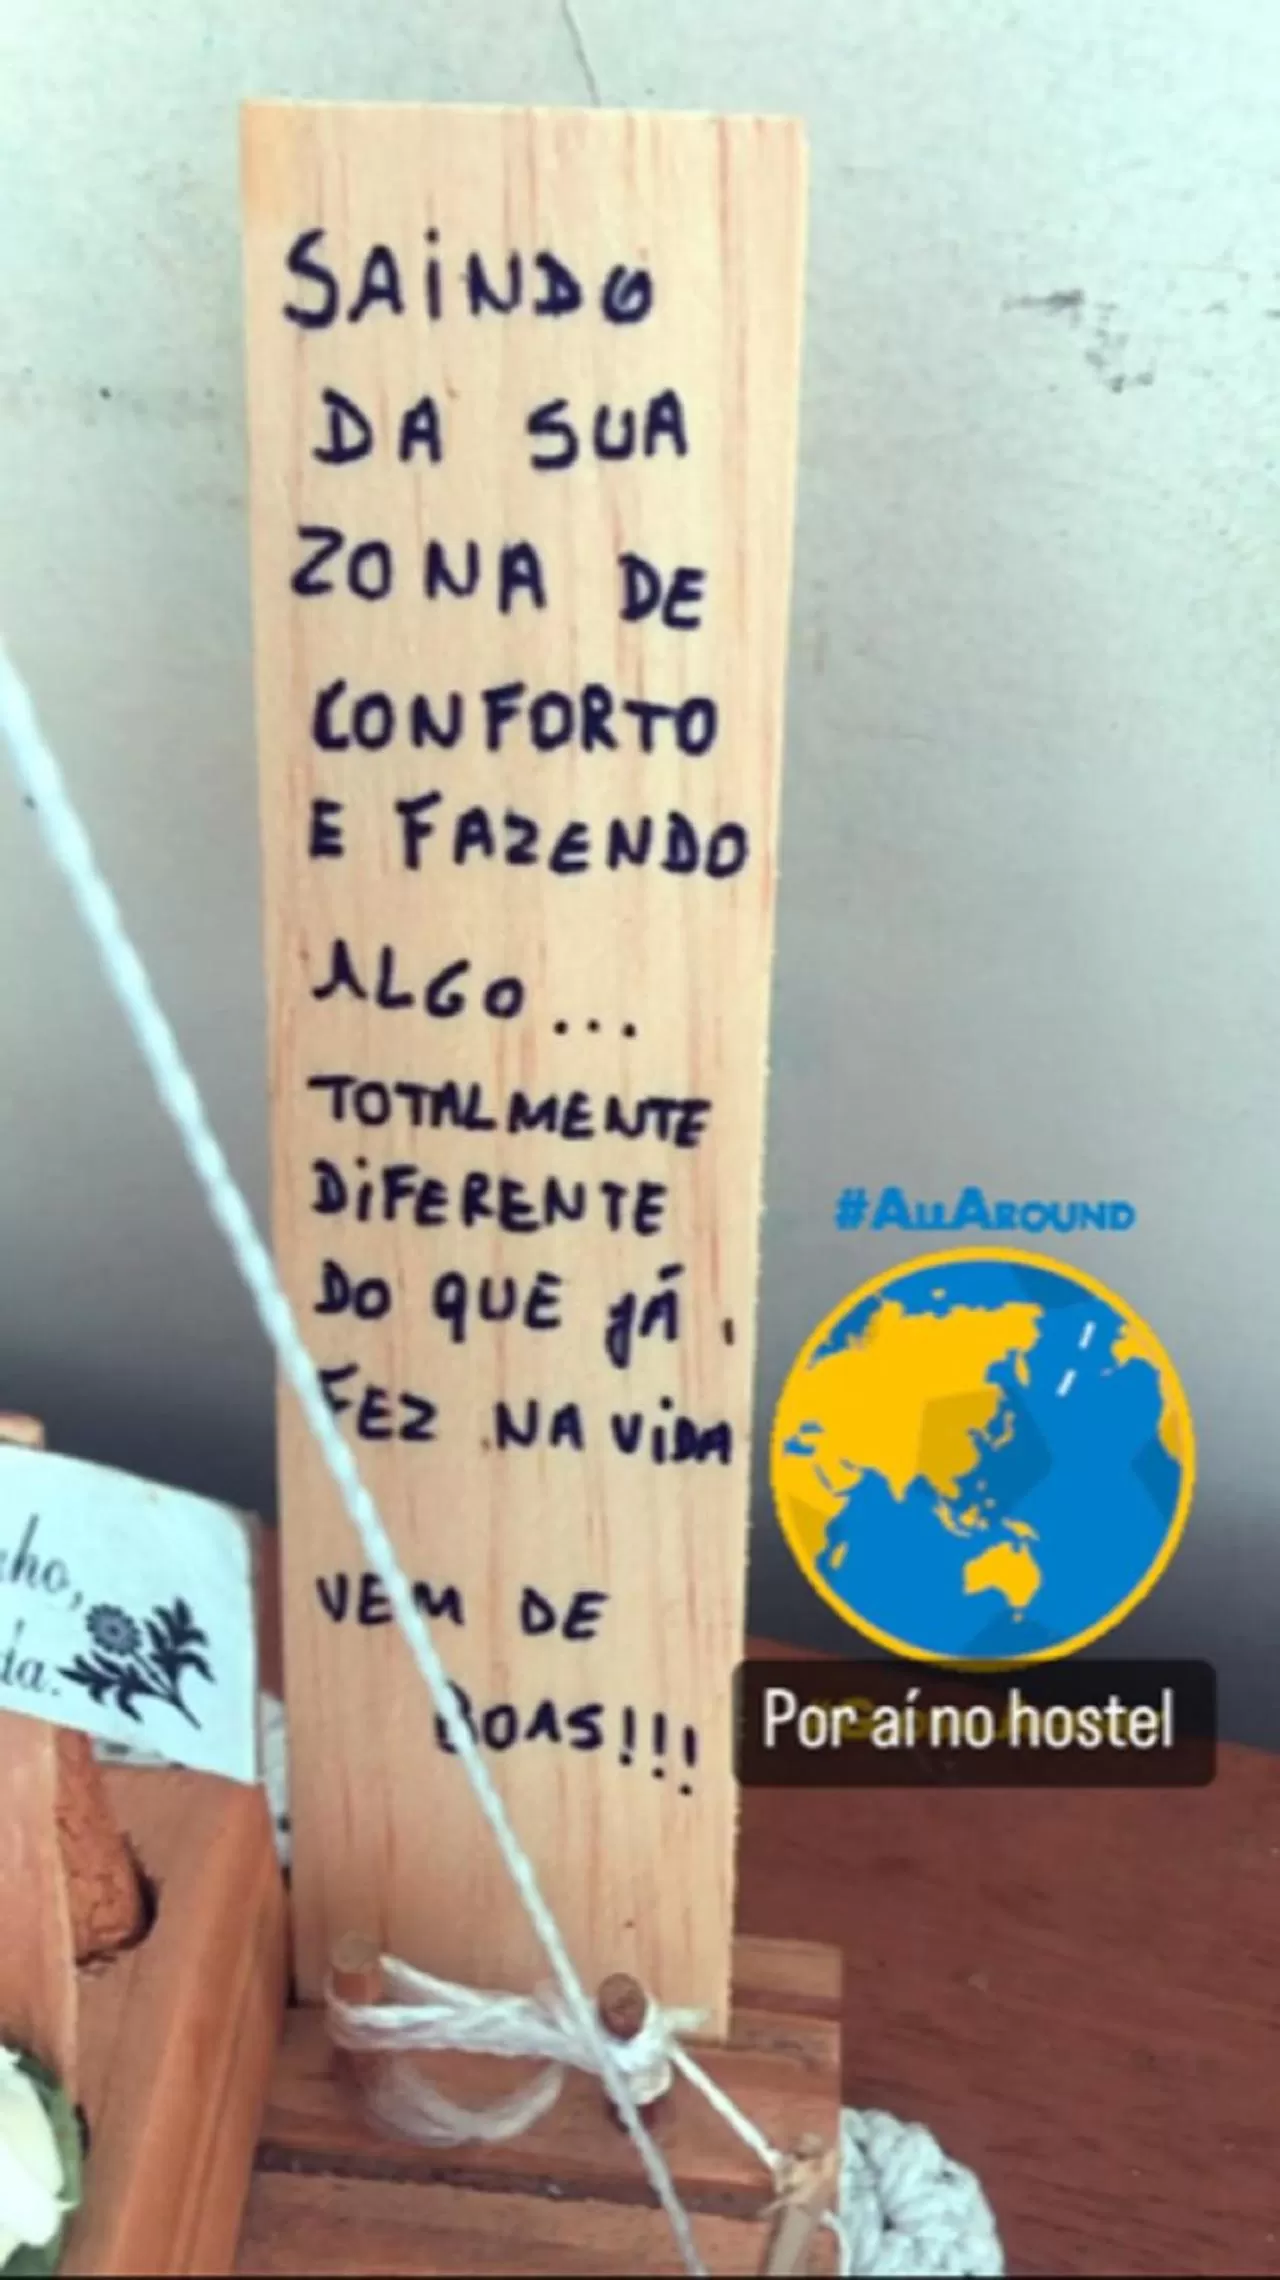 SAiNDO
DA SUA
ZONA DE
CONFORTO
E FAZENDO
ALGO...
TOTALMENTE
DiFERENTE
DO QUE JÁ
FEZ NA ViDA
VEM DE
BOAS!!!
#ALLAROUND
Por aí no hostel